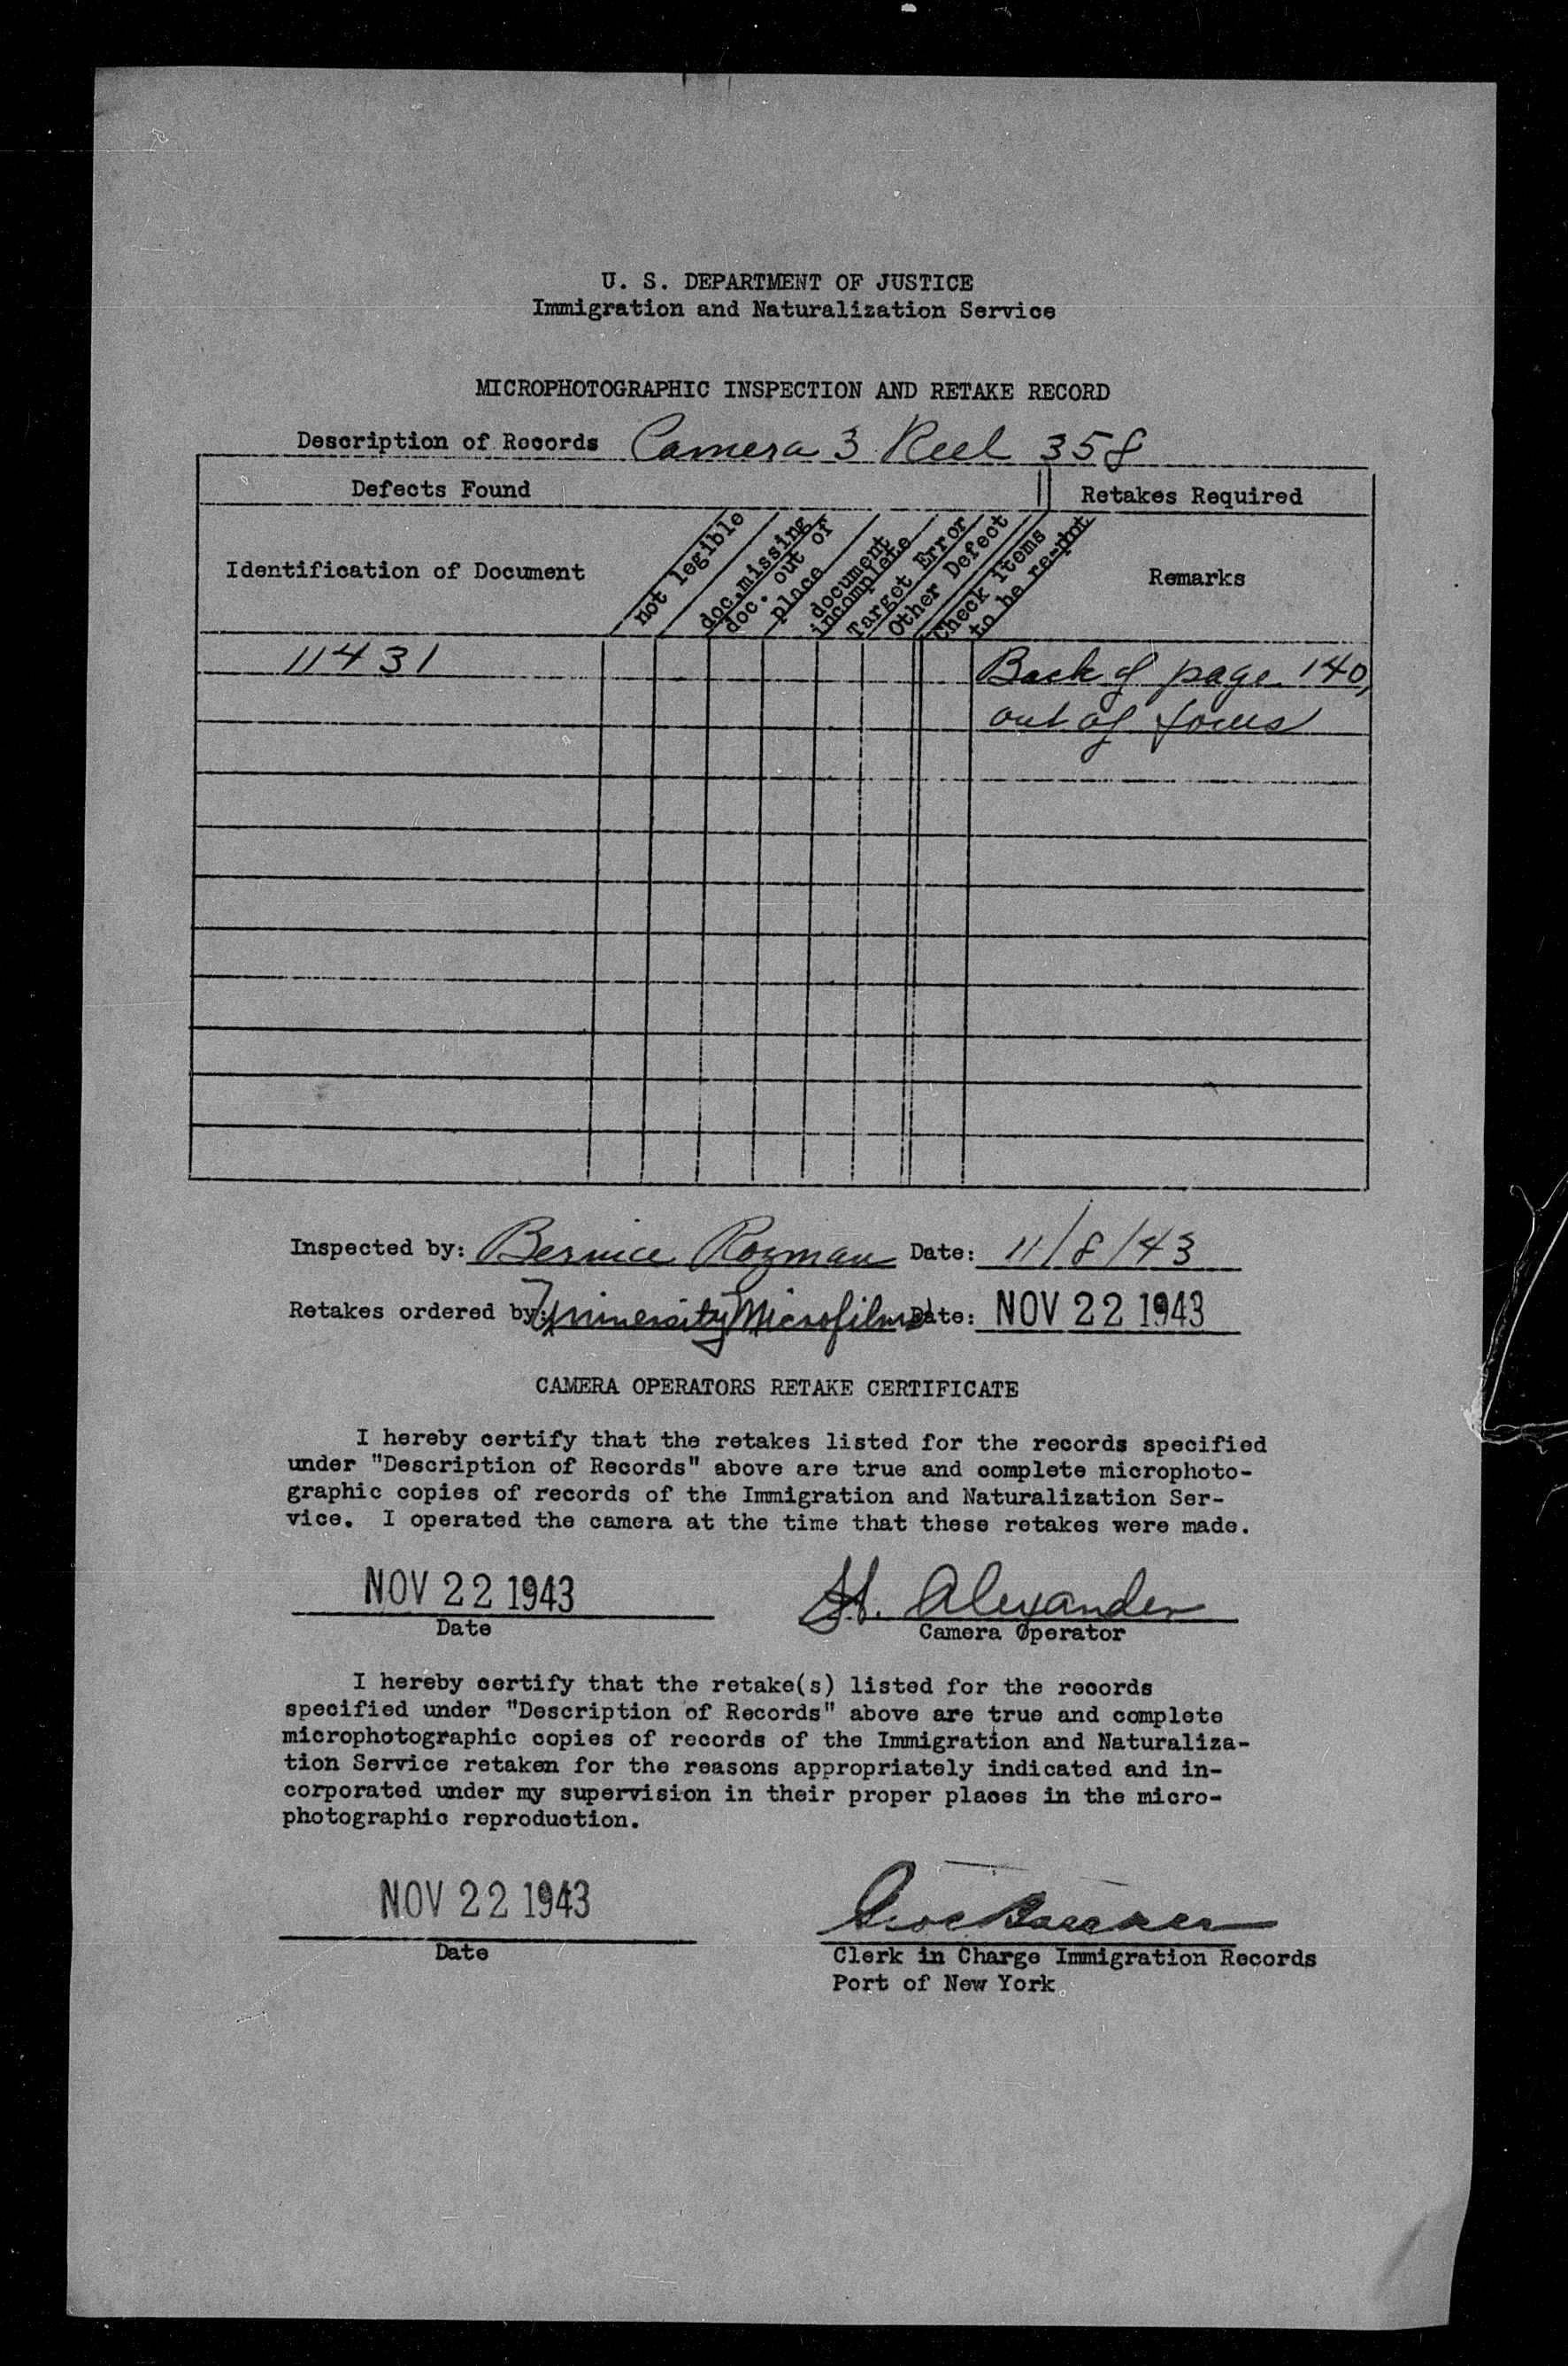 U. S. DEPARTMENT OF JUSTICE
Immigration and Naturalization Service
MICROPHOTOGRAPHIC INSPECTION AND RETAKE RECORD
Description of Records Camera 3 Reel 358
Defects Found
Retakes Required
Identification of Document
not legible
doc. missing
doc. out of
place
document
incomplete
Target Error
Other Defect
Check items
to be re-phot
Remarks
11431
Back of page 140,
out of focus
Inspected by: Bernice Rozman Date: 11/8/43
Retakes ordered by: University Microfilms Date: NOV 22 1943
CAMERA OPERATORS RETAKE CERTIFICATE
I hereby certify that the retakes listed for the records specified
under "Description of Records" above are true and complete microphoto-
graphic copies of records of the Immigration and Naturalization Ser-
vice. I operated the camera at the time that these retakes were made.
NOV 22 1943 H. Alexander
Date Camera Operator
I hereby certify that the retake(s) listed for the records
specified under "Description of Records" above are true and complete
microphotographic copies of records of the Immigration and Naturaliza-
tion Service retaken for the reasons appropriately indicated and in-
corporated under my supervision in their proper places in the micro-
photographic reproduction.
NOV 22 1943
Date Clerk in Charge Immigration Records
Port of New York